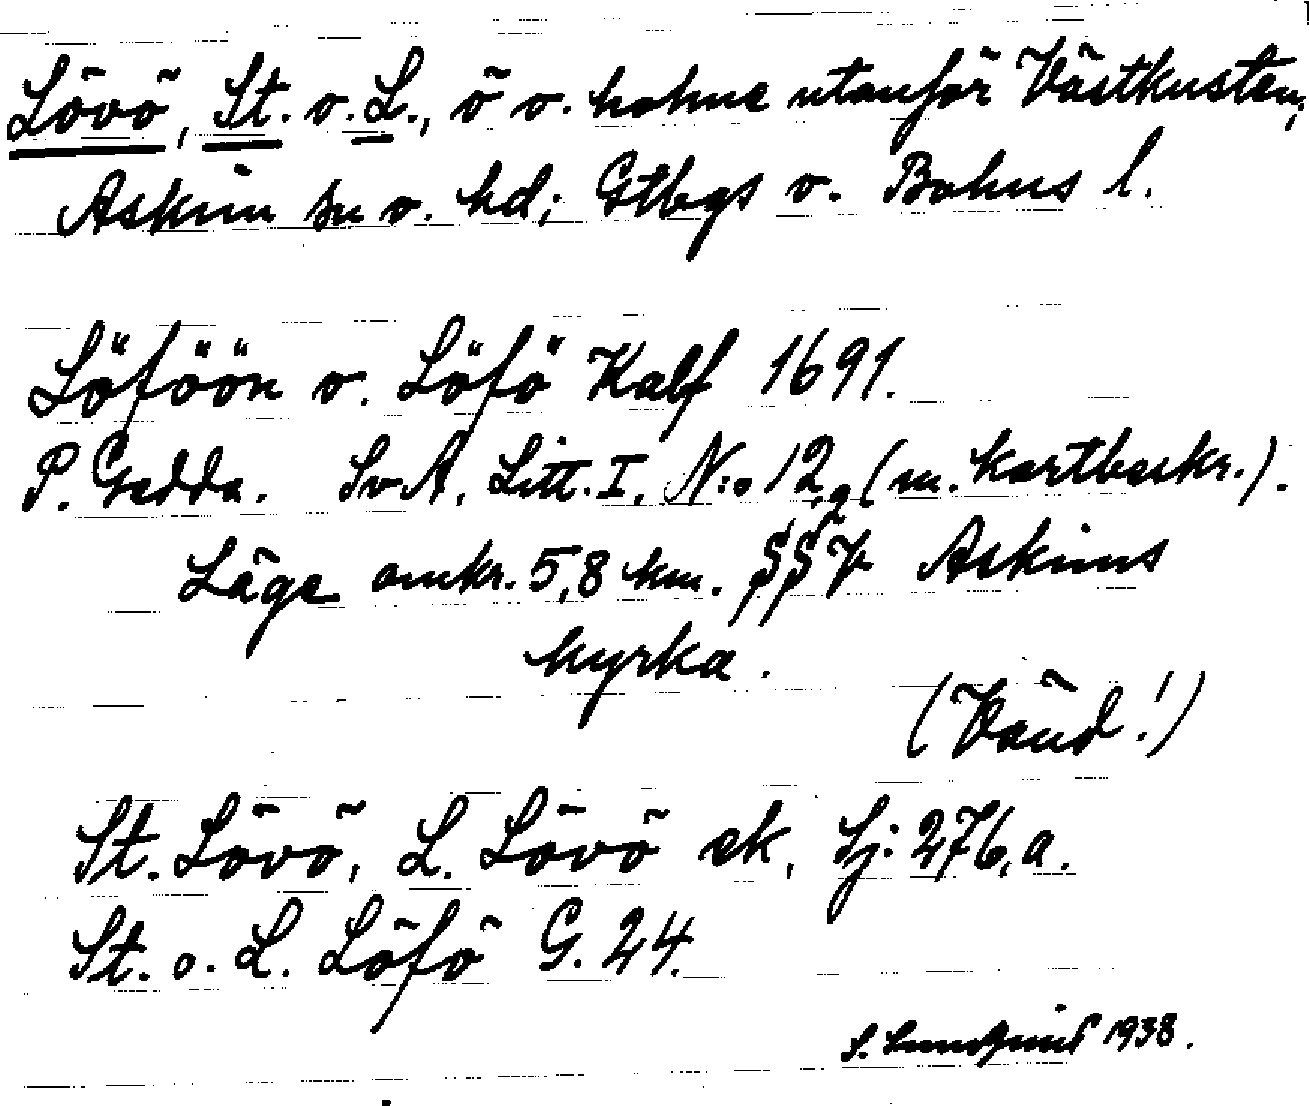 Lövö, St. o. L., ö o. holme utanför Västkusten,
Askim sn o. hd; Gtbgs o. Bohus l.
Löföön o. Löfö Kalf 1691.
P. Gedda. SvA. Litt. I. N:o 12,2 (m. kartbeskr.).
Läge omkr. 5,8 km. SSV Askims
kyrka.
(Vänd!)
St. Lövö, L. Lövö ek. Sj: 276, a.
St. o. L. Löfö G. 24.
S. Lundquist 1938.